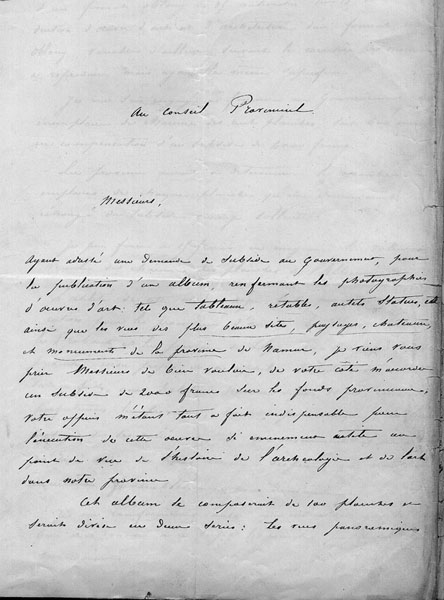 Au Conseil Provincial
Messieurs,
Ayant adressé une demande de subside au Gouvernement, pour
la publication d'un album, renfermant les photographies
d'œuvres d'art tels que tableaux, retables, autels Statues, etc
ainsi que les vues des plus beaux sites, paysages, chateaux,
et monuments de la province de Namur, je viens vous
prier Messieurs de bien vouloir, de votre côté m'accorder
un subside de 2000 francs sur les fonds provinciaux,
votre appui m'étant tout a fait indispensable pour
l'execution de cette oeuvre si eminement utile au
point de vue de l'histoire de l'archeologie et de l'art
dans notre province
Cet album se composerait de 100 planches &
serait divisé en deux series: les vues panoramiques